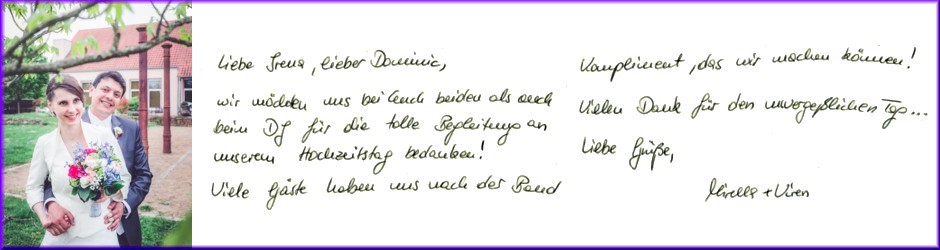 Liebe Irena, lieber Dominic,
wir möchten uns bei Euch beiden als auch
beim DJ für die tolle Begleitung an
unserem Hochzeitstag bedanken!
Viele Gäste haben uns nach der Band
Kompliment, das wir machen können!
Vielen Dank für den unvergeßlichen Tag...
Liebe Grüße,
Mirella +